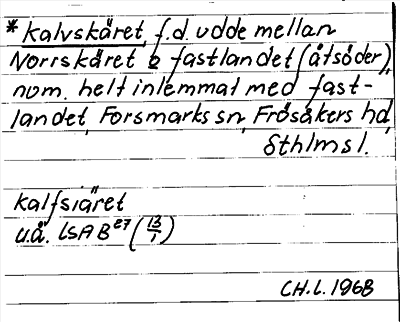 * Kalvskäret, f.d. udde mellan
Norrskäret o fastlandet (åtsöder),
num. helt inlemmat med fast-
landet, Forsmarks sn, Frösåkers hd,
Sthlms l.
Kalfsiäret
u.å. LSA B 27 (13/1)
CH.L. 1968